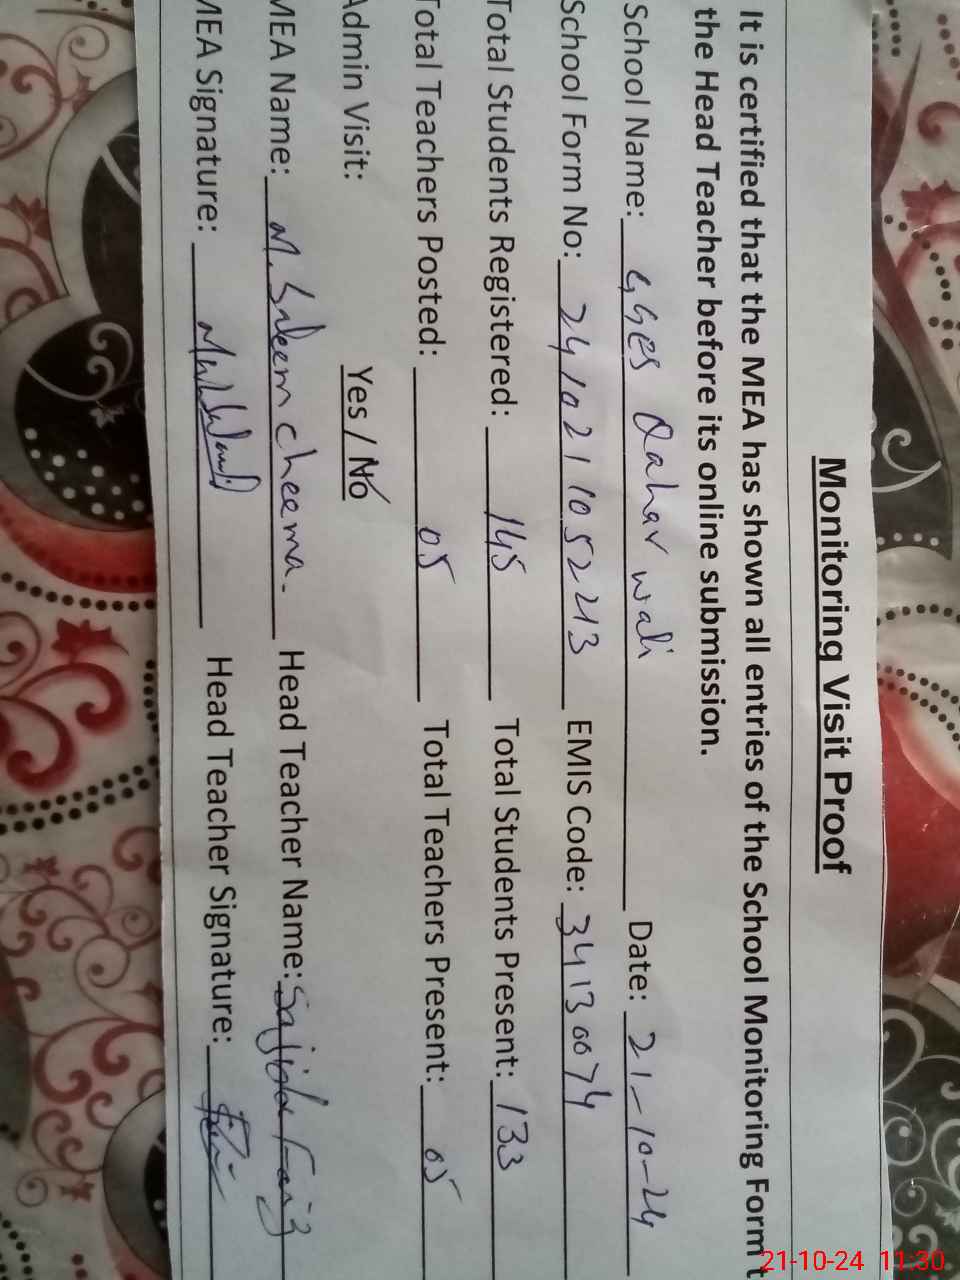 Monitoring Visit Proof
It is certified that the MEA has shown all entries of the School Monitoring Form t
the Head Teacher before its online submission.
School Name: GGES Qahar wali Date: 21-10-24
School Form No: 2410211052213 EMIS Code: 34130074
Total Students Registered: 145 Total Students Present: 133
Total Teachers Posted: 05 Total Teachers Present: 05
Admin Visit: Yes / No
MEA Name: M. Saleem cheema. Head Teacher Name: Sajida Faiz
MEA Signature: Head Teacher Signature:
21-10-24 11:30